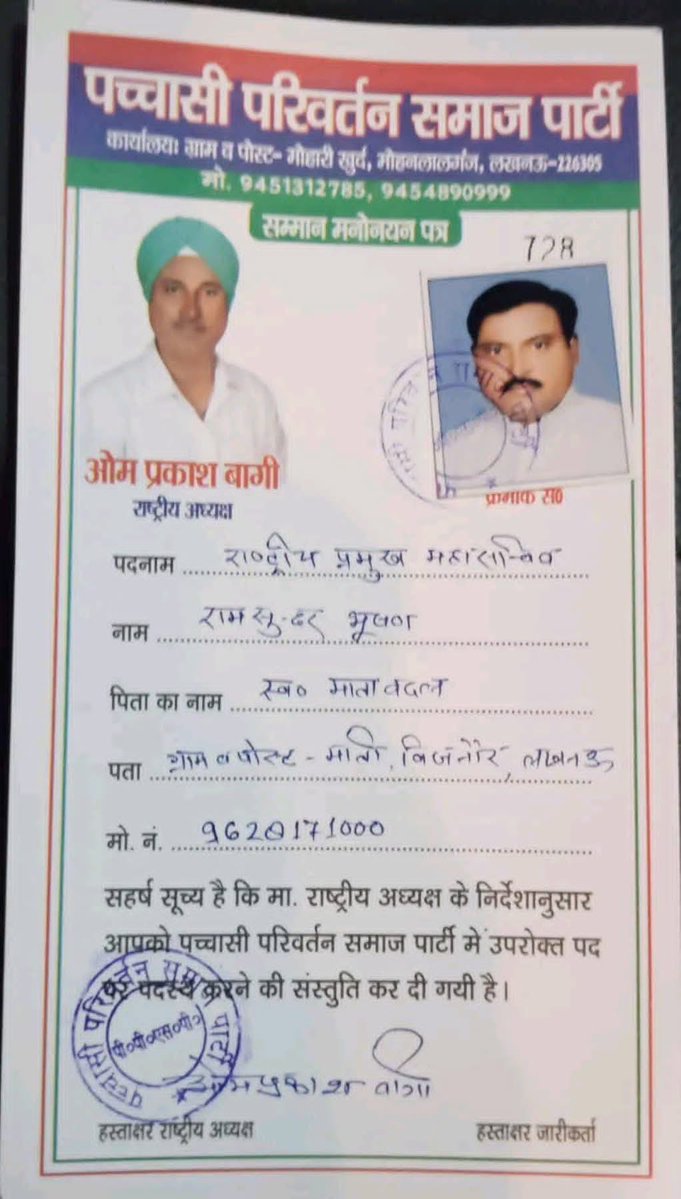 पच्चासी परिवर्तन समाज पार्टी
कार्यालयः ग्राम व पोस्ट- गौहारी खुर्द, मोहनलालगंज, लखनऊ-226305
मो. 9451312785, 9454890999
सम्मान मनोनयन पत्र
728
ओम प्रकाश बागी
राष्ट्रीय अध्यक्ष
क्रमांक सं0
पदनाम राष्ट्रीय प्रमुख महासचिव
नाम रामसुन्दर भूषण
पिता का नाम स्व० माताबदल
पता ग्राम व पोस्ट - माती, बिजनौर, लखनऊ
मो. नं. 9620171000
सहर्ष सूच्य है कि मा. राष्ट्रीय अध्यक्ष के निर्देशानुसार
आपको पच्चासी परिवर्तन समाज पार्टी में उपरोक्त पद
पर पदस्थ करने की संस्तुति कर दी गयी है।
पच्चासी परिवर्तन समाज पार्टी
पी०पी०एस०पी०
ओमप्रकाश बागी
हस्ताक्षर राष्ट्रीय अध्यक्ष
हस्ताक्षर जारीकर्ता